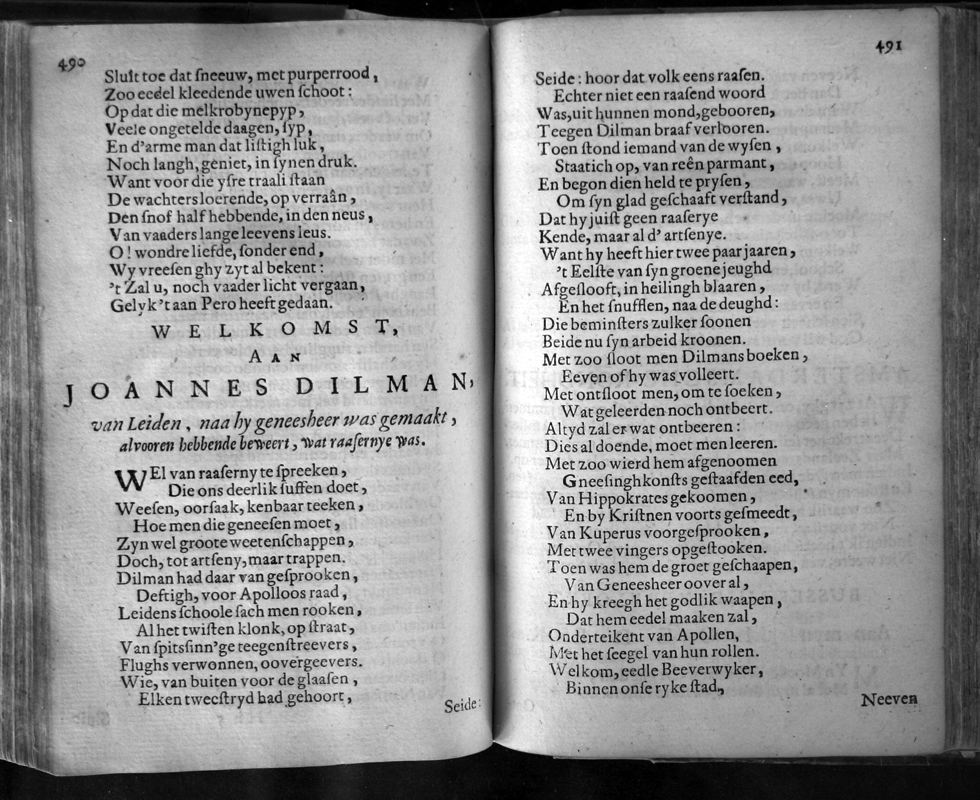 490
Sluit toe dat ſneeuw, met purperrood,
Zoo eedel kleedende uwen ſchoot:
Op dat die melkrobynepyp,
Veele ongetelde daagen, ſyp,
En d'arme man dat liſtigh luk,
Noch langh, geniet, in ſynen druk.
Want voor die yſre traali ſtaan
De wachters loerende, op verraân,
Den ſnof half hebbende, in den neus,
Van vaaders lange leevens leus.
O! wondre liefde, ſonder end,
Wy vreeſen ghy zyt al bekent:
't Zal u, noch vaader licht vergaan,
Gelyk 't aan Pero heeft gedaan.
WELKOMST,
AAN
JOANNES DILMAN,
van Leiden, naa hy geneesheer was gemaakt,
alvooren hebbende beweert, wat raaſernye was.
WEl van raaſerny te ſpreeken,
Die ons deerlik ſuffen doet,
Weeſen, oorſaak, kenbaar teeken,
Hoe men die geneeſen moet,
Zyn wel groote weetenſchappen,
Doch, tot artſeny, maar trappen.
Dilman had daar van geſprooken,
Deftigh, voor Apolloos raad,
Leidens ſchoole ſach men rooken,
Al het twiſten klonk, op ſtraat,
Van ſpitsſinn'ge teegenſtreevers,
Flughs verwonnen, oovergeevers.
Wie, van buiten voor de glaaſen,
Elken tweeſtryd had gehoort,
Seide:
491
Seide: hoor dat volk eens raaſen.
Echter niet een raaſend woord
Was, uit hunnen mond, gebooren,
Teegen Dilman braaf verlooren.
Toen ſtond iemand van de wyſen,
Staatich op, van reên parmant,
En begon dien held te pryſen,
Om ſyn glad geſchaaft verſtand,
Dat hy juiſt geen raaſerye
Kende, maar al d' artſenye.
Want hy heeft hier twee paar jaaren,
't Eelſte van ſyn groene jeughd
Afgeſlooft, in heilingh blaaren,
En het ſnufflen, naa de deughd:
Die beminſters zulker ſoonen
Beide nu ſyn arbeid kroonen.
Met zoo ſloot men Dilmans boeken,
Eeven of hy was volleert.
Met ontſloot men, om te ſoeken,
Wat geleerden noch ontbeert.
Altyd zal er wat ontbeeren:
Dies al doende, moet men leeren.
Met zoo wierd hem afgenoomen
Gneeſinghkonſts geſtaafden eed,
Van Hippokrates gekoomen,
En by Kriſtnen voorts geſmeedt,
Van Kuperus voorgeſprooken,
Met twee vingers opgeſtooken.
Toen was hem de groet geſchaapen,
Van Geneesheer oover al,
En hy kreegh het godlik waapen,
Dat hem eedel maaken zal,
Onderteikent van Apollen,
Met het ſeegel van hun rollen.
Welkom, eedle Beeverwyker,
Binnen onſe ryke ſtad,
Neeven